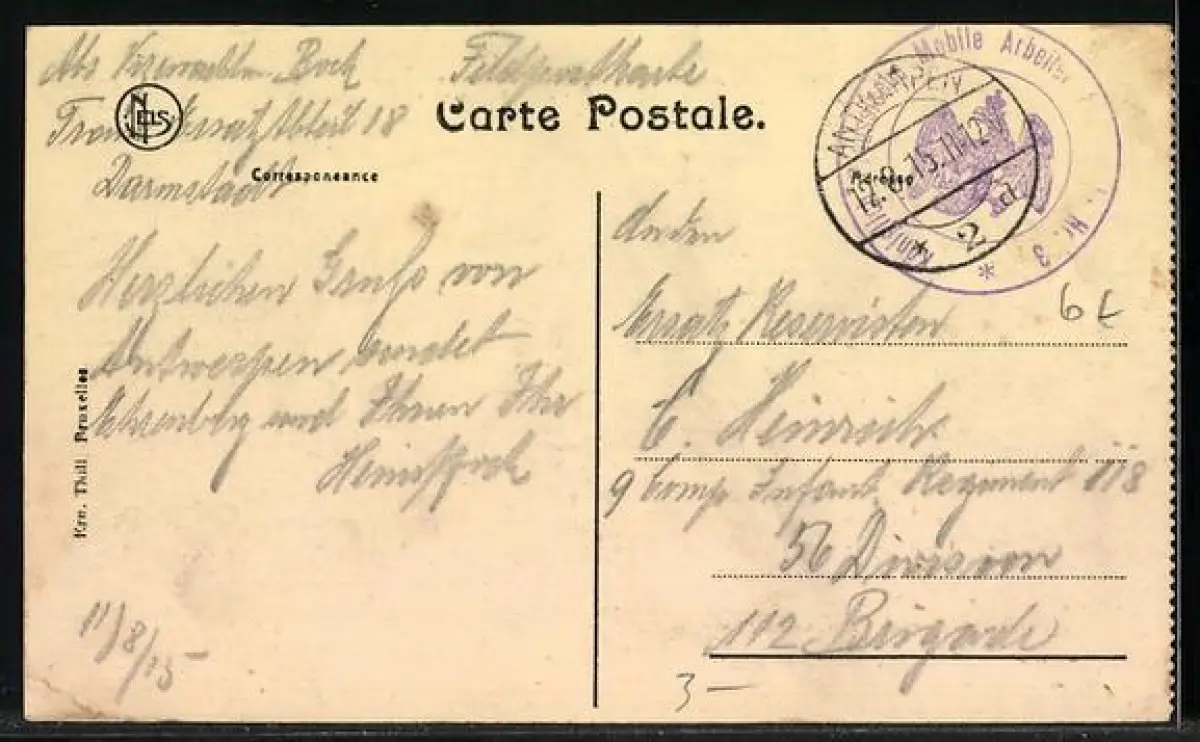 Abs Vizewachtm. Bock
Feldpostkarte
NELS
Ersatz Abteil 18
Carte Postale.
Correspondance
Darmstadt
Herzlichen Gruß von
Antwerpen sendet
und Ihnen Ihr
11/8/15
Ern. Thill Bruxelles
Mobile Arbeits
Nr. 3
*
ANTWERPEN
12.8.15.11-12V
* 2 d
Adresse
An den
Ersatz Reservisten
6 L
C. Heinrich
9 Comp Infant. Regiment 118
56 Division
112 Birgade
3 –